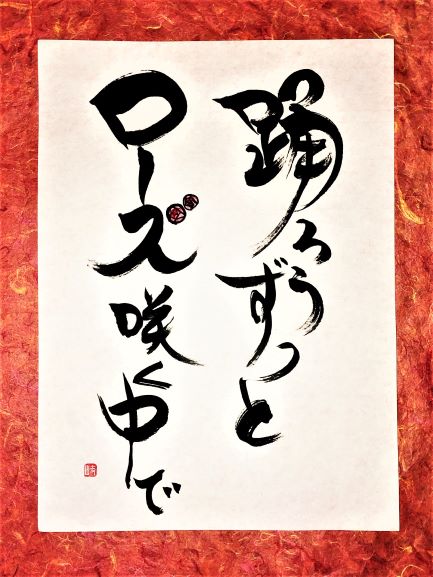 踊ろうずっと
ローズ咲く中で